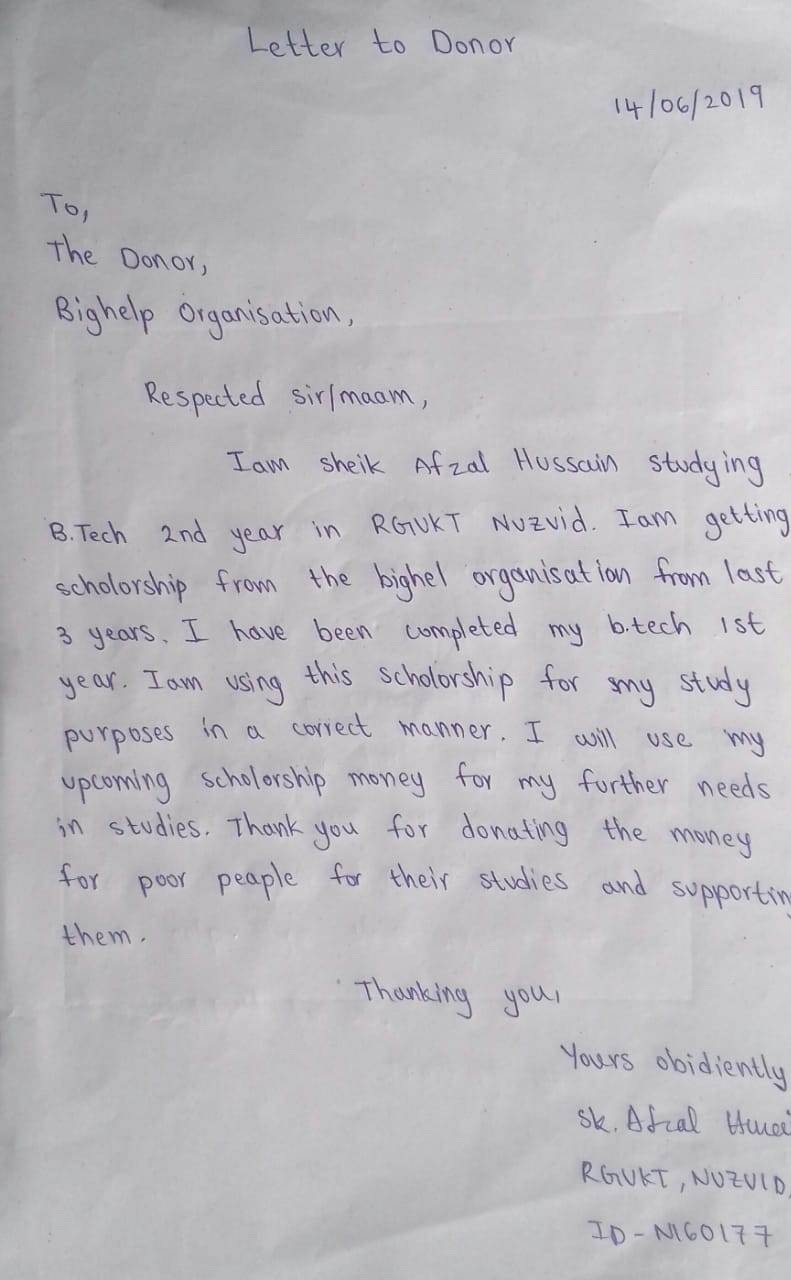 Letter to Donor
14/06/2019
To,
The Donor,
Bighelp Organisation,
Respected sir/maam,
Iam sheik Afzal Hussain studying
B.Tech 2nd year in RGUKT Nuzvid. Iam getting
scholorship from the bighel organisation from last
3 years. I have been completed my b.tech 1st
year. Iam using this scholorship for my study
purposes in a correct manner. I will use my
upcoming scholorship money for my further needs
in studies. Thank you for donating the money
for poor peaple for their studies and supportin
them.
Thanking you,
Yours obidiently
Sk. Afzal
RGUKT, NUZVID,
ID-N160177